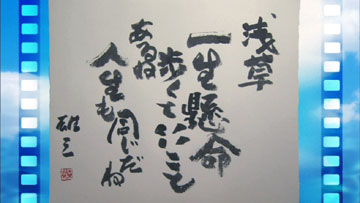 浅草
一生懸命
歩くといいことも
あるね
人生も
同じだね
雄三